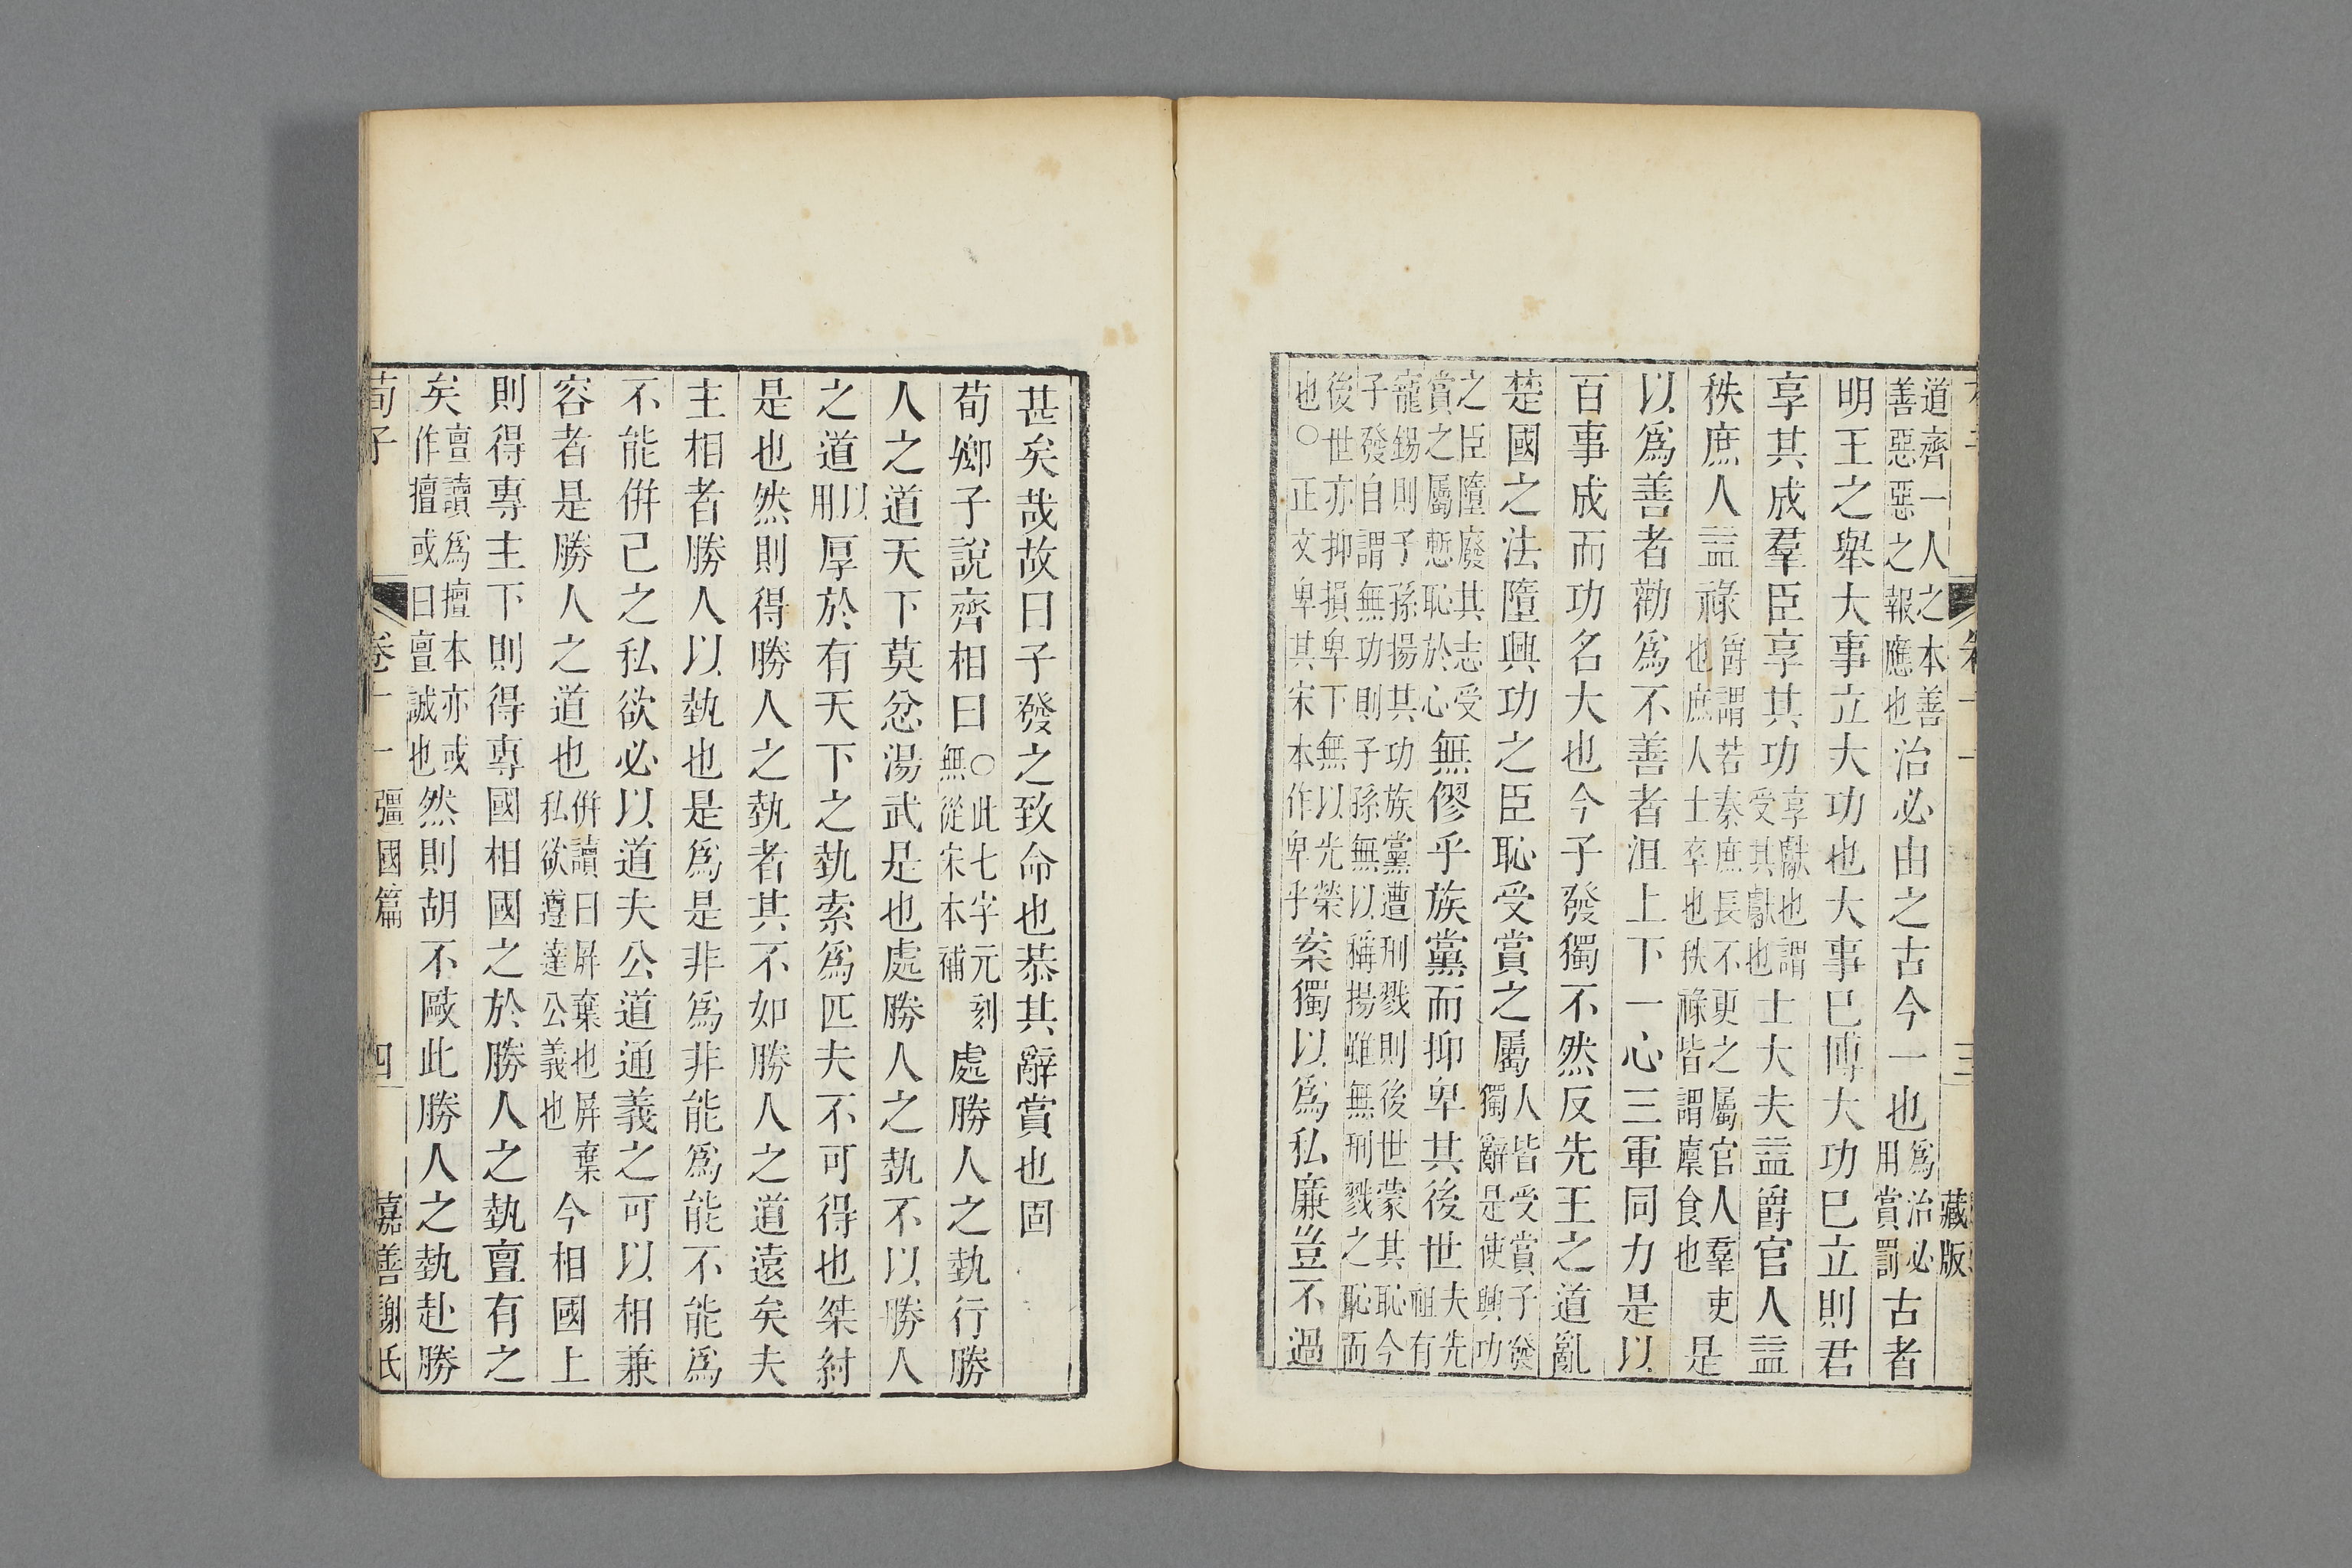 道齊一人之本善
善惡惡之報應也
治必由之古今一也
爲治必
用賞罰
古者
明王之舉大事立大功也大事已博大功已立則君
享其成羣臣享其功
享獻也謂
受其獻也
士大夫益爵官人益
秩庶人益祿
爵謂若秦庶長不更之屬官人羣吏
也庶人士卒也秩祿皆謂廩食也
是
以爲善者勸爲不善者沮上下一心三軍同力是以
百事成而功名大也今子發獨不然反先王之道亂
楚國之法墮興功之臣恥受賞之屬
人皆受賞子發
獨辭是使興功
之臣墮廢其志受
賞之屬慙恥於心
無僇乎族黨而抑卑其後世
夫先
祖有
寵錫則子孫揚其功族黨遭刑戮則後世蒙其恥今
子發自謂無功則子孫無以稱揚雖無刑戮之恥而
後世亦抑損卑下無以光榮
也○正文卑其宋本作卑乎
案獨以爲私廉豈不過
三
藏版
甚矣哉故曰子發之致命也恭其辭賞也固
荀卿子說齊相曰
○此七字元刻
無從宋本補
處勝人之埶行勝
人之道天下莫忿湯武是也處勝人之埶不以勝人
之道
以
用
厚於有天下之埶索爲匹夫不可得也桀紂
是也然則得勝人之埶者其不如勝人之道遠矣夫
主相者勝人以埶也是爲是非爲非能爲能不能爲
不能併己之私欲必以道夫公道通義之可以相兼
容者是勝人之道也
併讀曰屏棄也屏棄
私欲遵達公義也
今相國上
則得專主下則得專國相國之於勝人之埶亶有之
矣
亶讀爲擅本亦或
作擅或曰亶誠也
然則胡不敺此勝人之埶赴勝
荀子
卷十一
彊國篇
四
嘉善謝氏